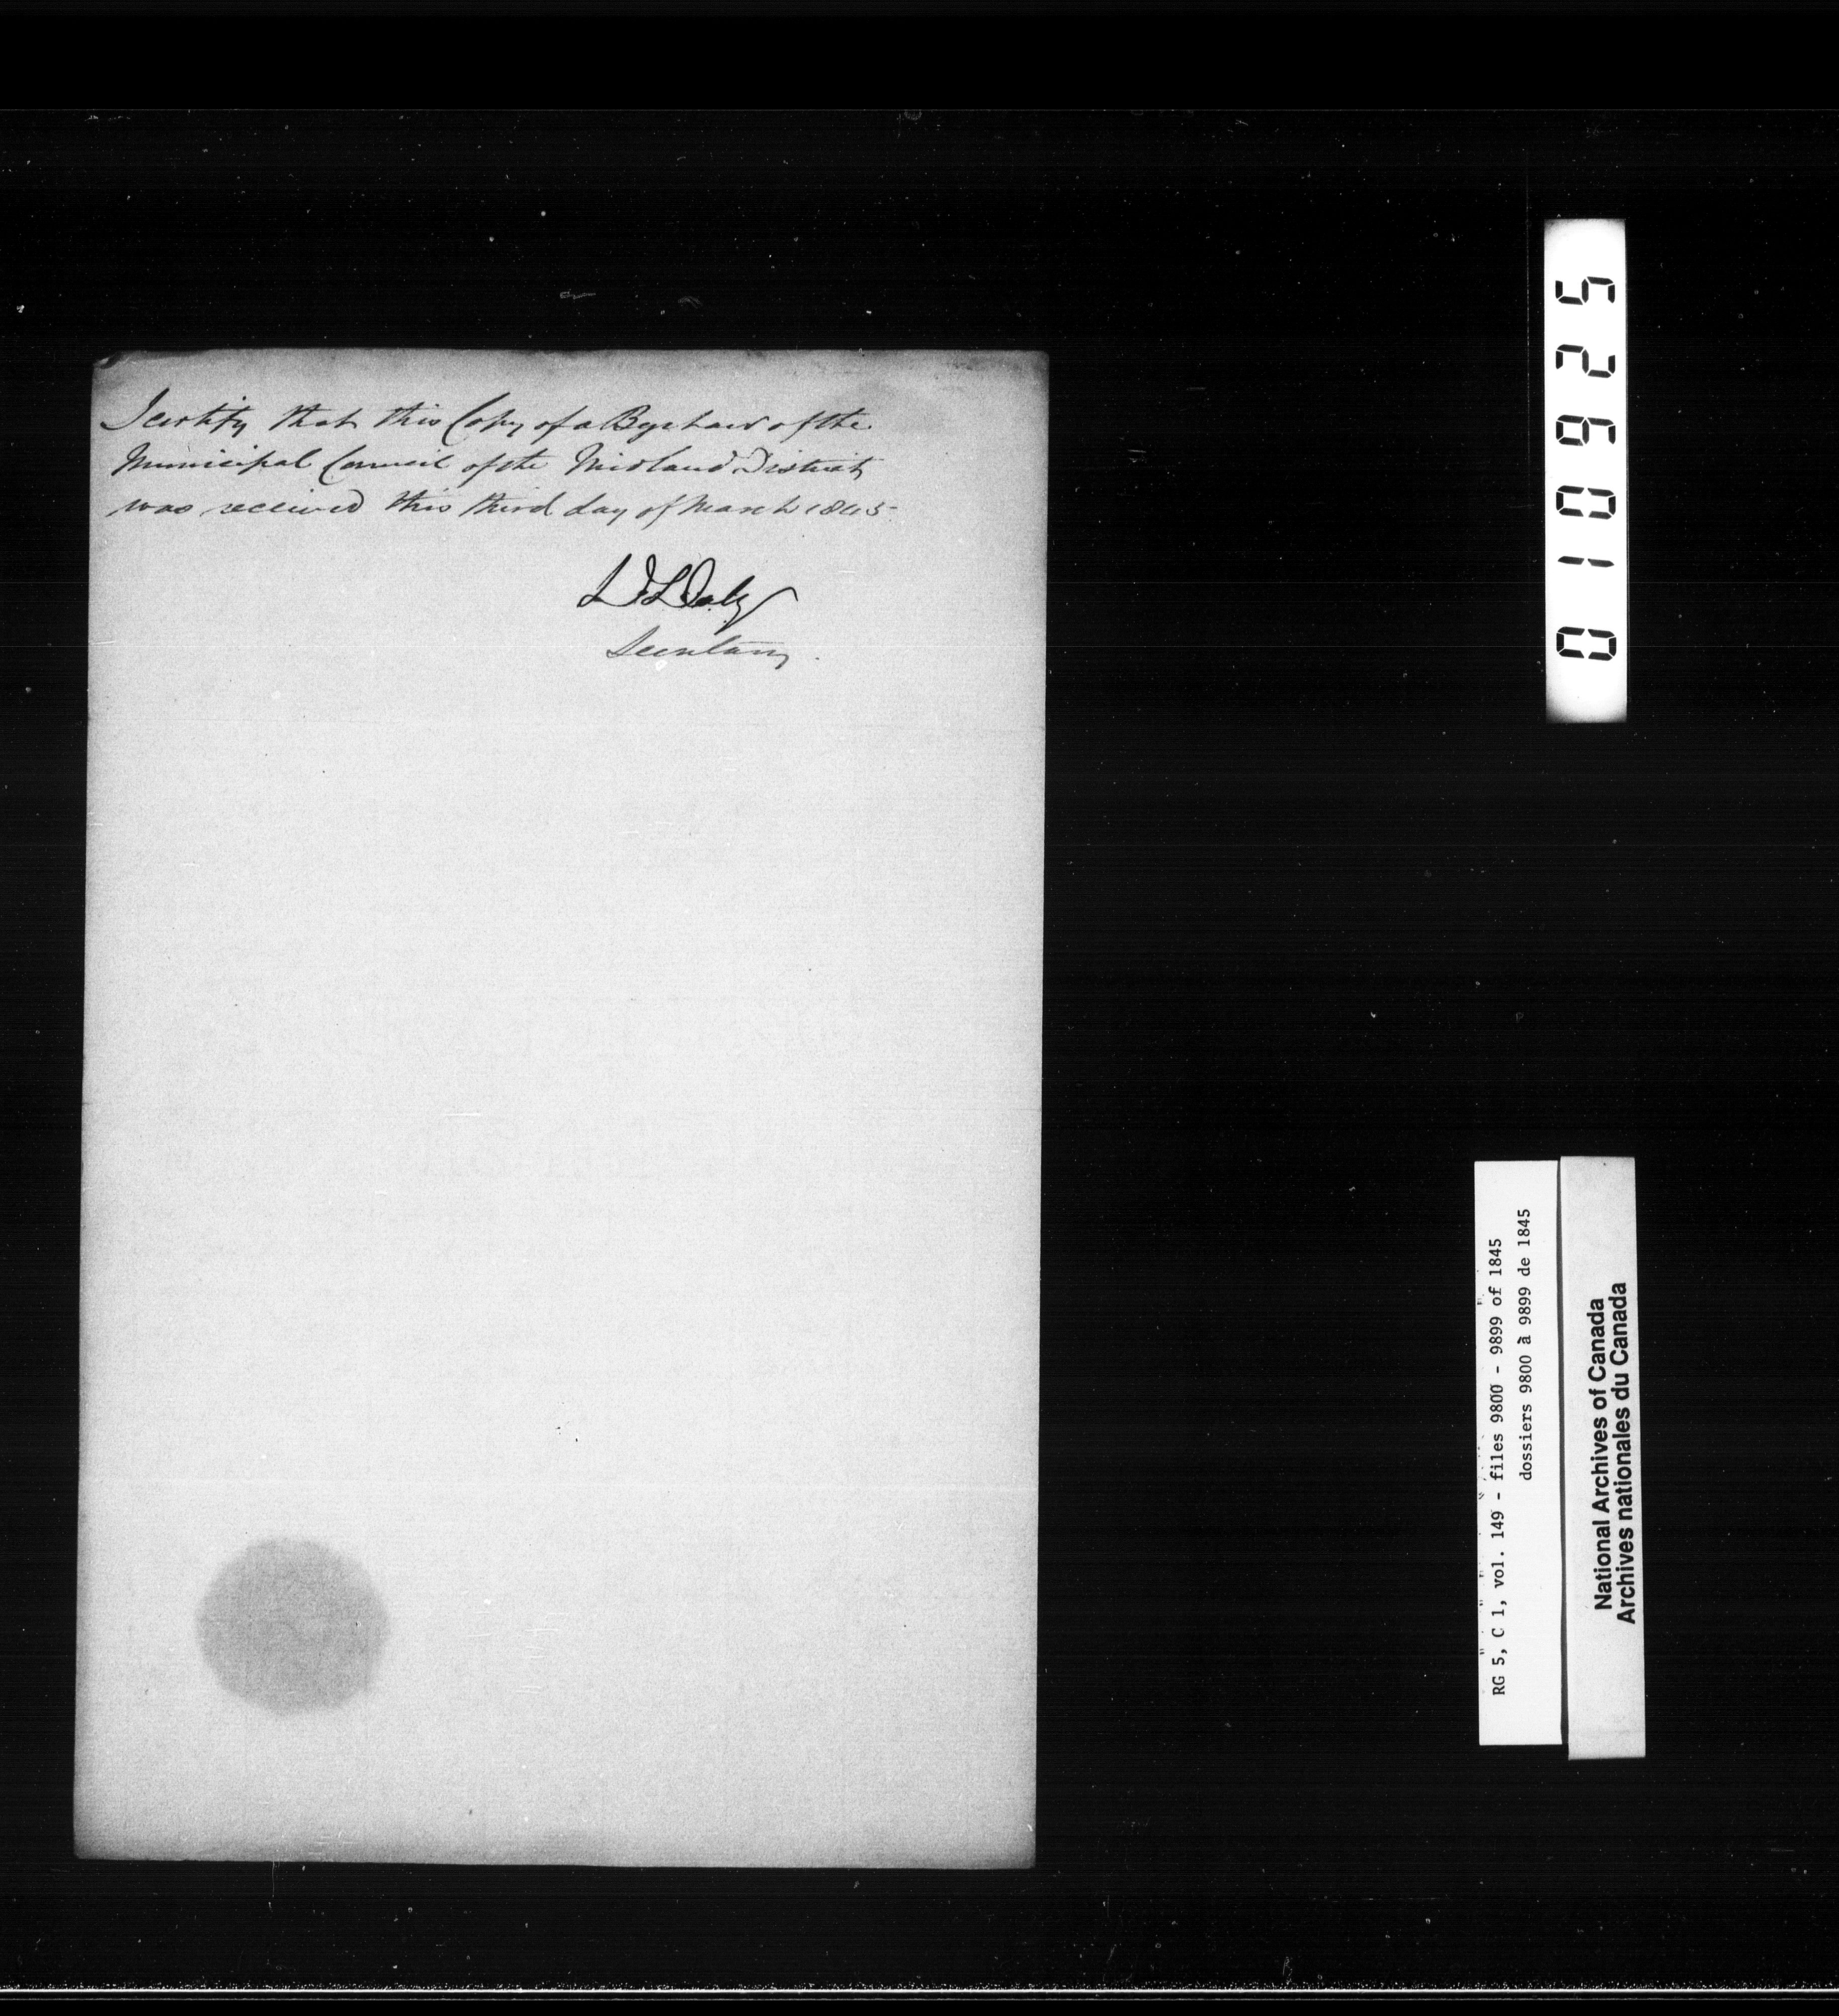 I certify that this Copy of a Bye Law of the
Municipal Council of the Midland District
was received this third day of March 1845
Daly
Secretary.
010925
RG 5, C 1, vol. 149 - files 9800 - 9899 of 1845
dossiers 9800 à 9899 de 1845
National Archives of Canada
Archives nationales du Canada